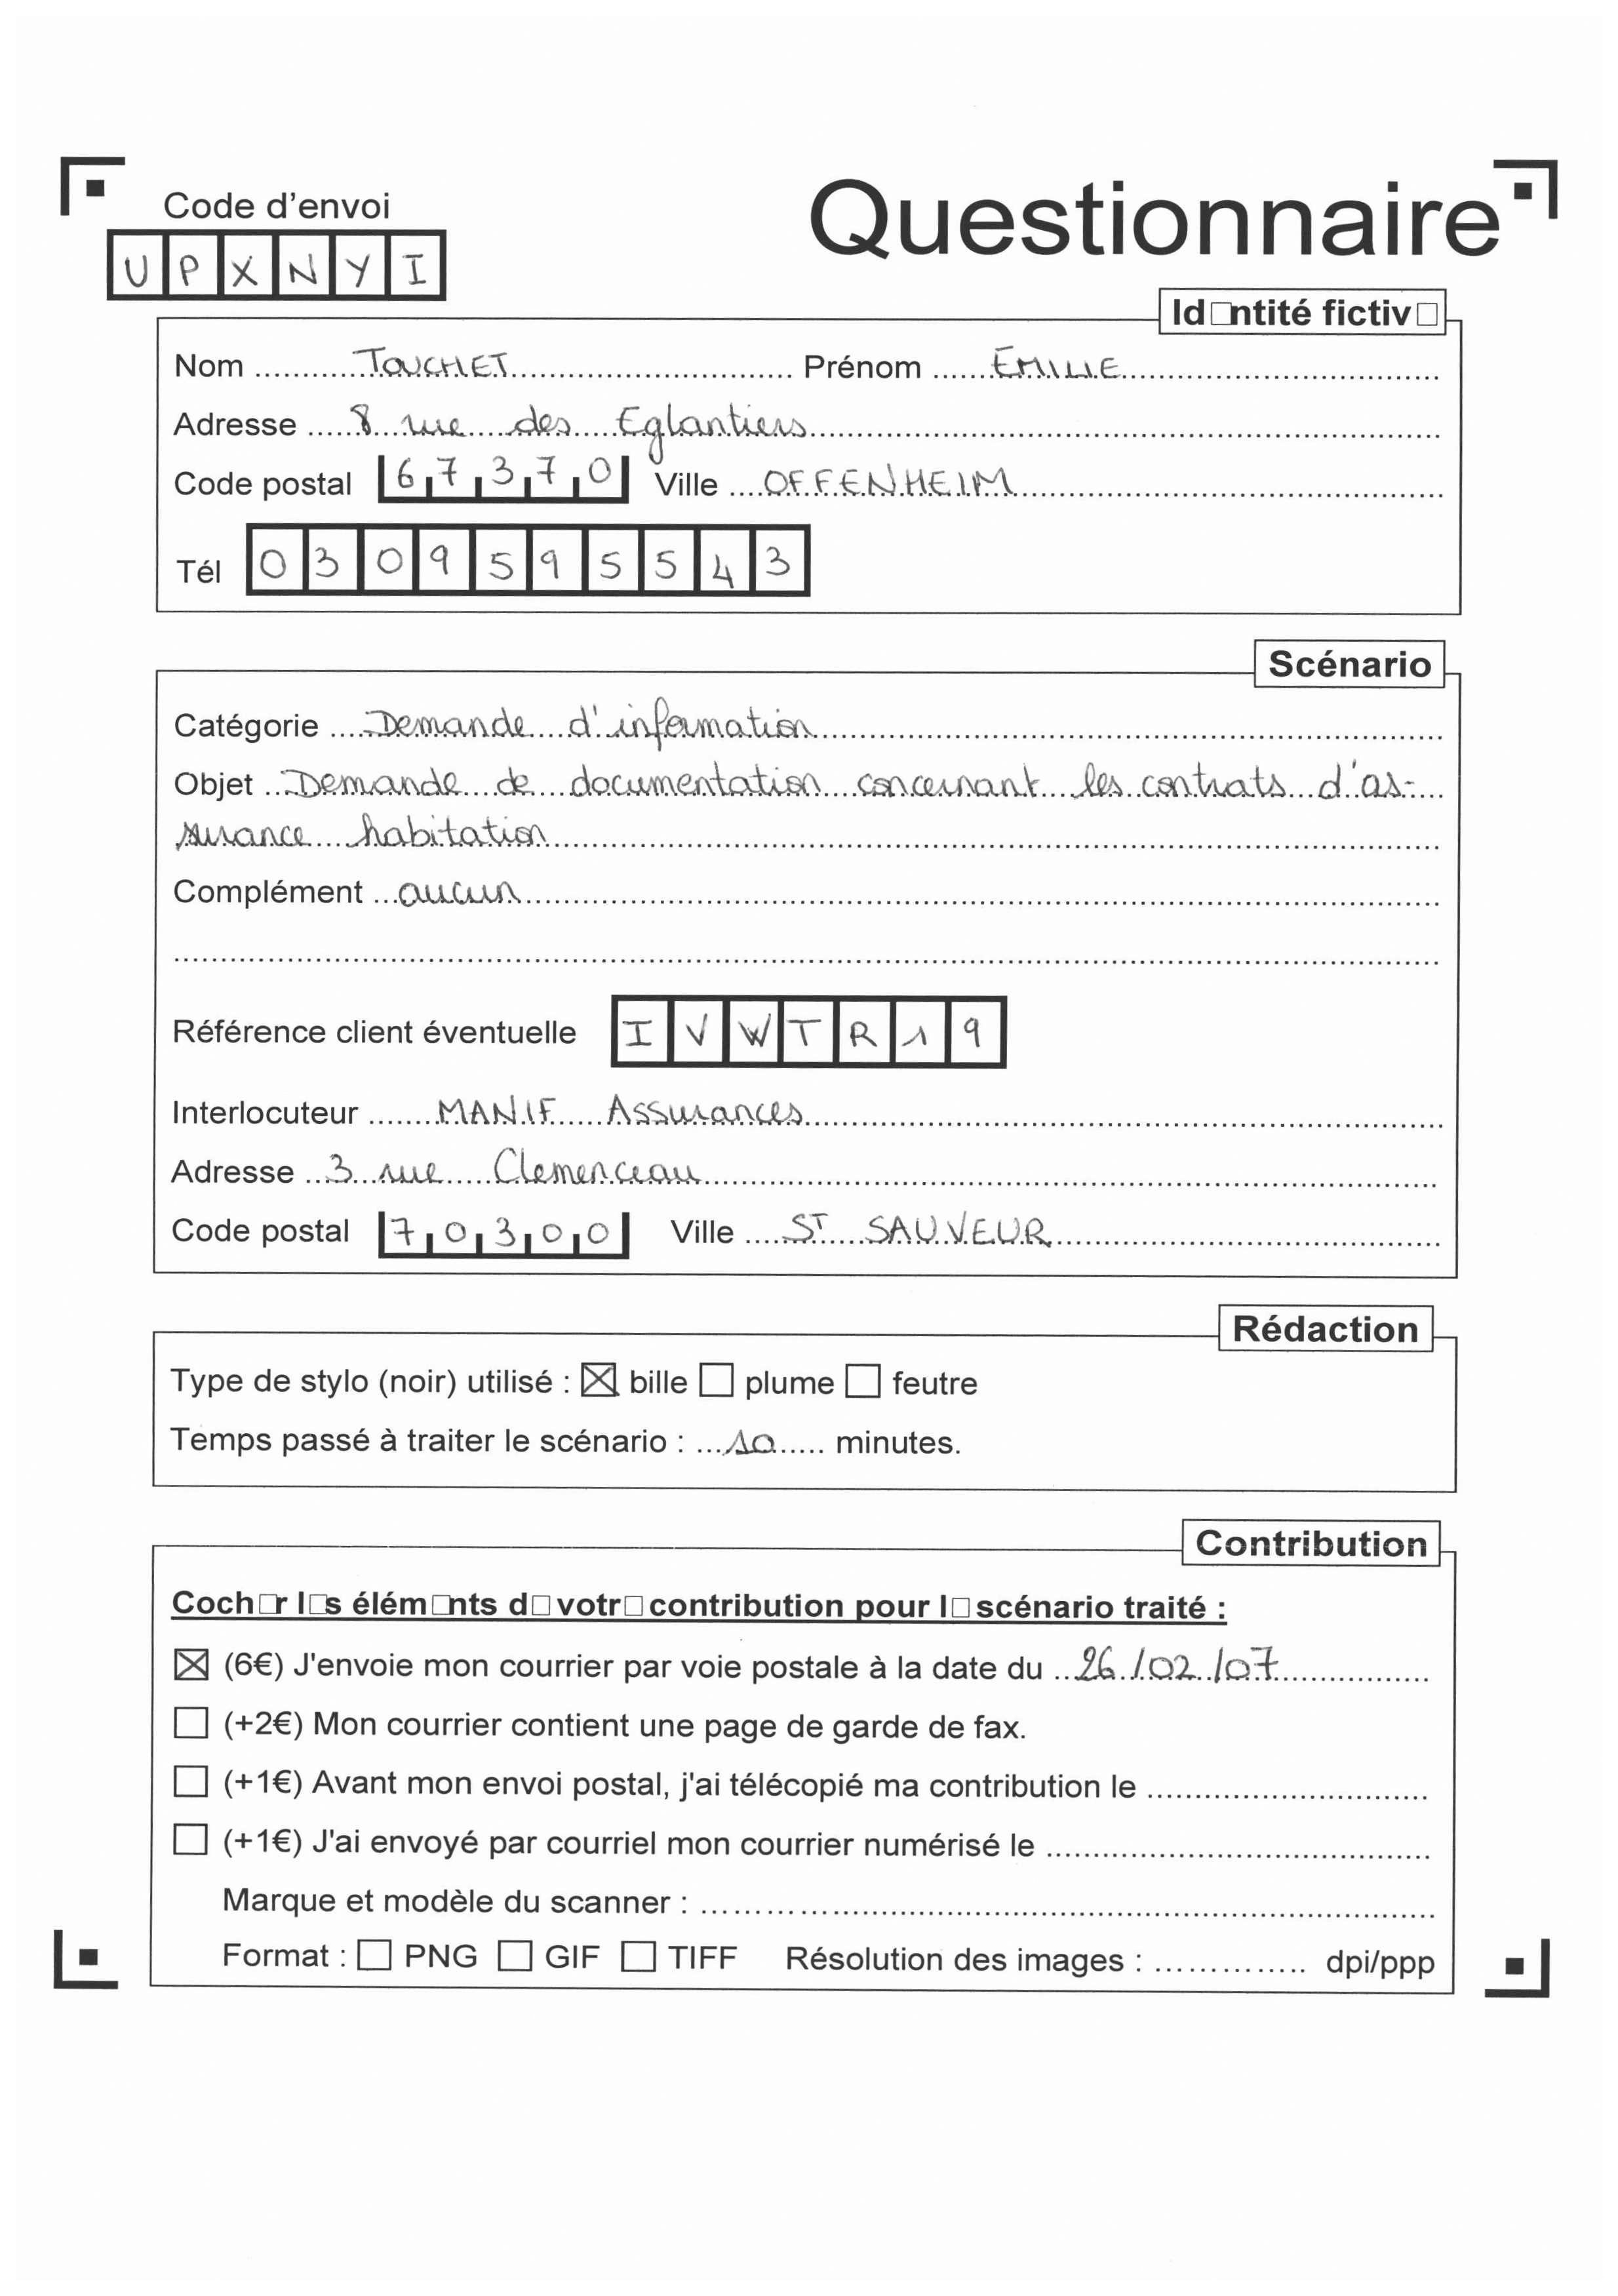 Code d'envoi
Questionnaire
U P X N Y I
Id□ntité fictiv□
Nom ........... TOUCHET ........... Prénom ...... EMILIE ...........
Adresse ..... 8 rue des Eglantiers ...........
Code postal 67370 Ville .... OFFENHEIM ...........
Tél 0309595543
Scénario
Catégorie .... Demande d'information ...........
Objet .. Demande de documentation concernant les contrats d'as-
surance habitation ...........
Complément ... aucun ...........
Référence client éventuelle I V W T R 1 9
Interlocuteur ....... MANIF Assurances ...........
Adresse ... 3 rue Clemenceau ...........
Code postal 70300 Ville ..... ST SAUVEUR ...........
Rédaction
Type de stylo (noir) utilisé : ☒ bille ☐ plume ☐ feutre
Temps passé à traiter le scénario : ... 10 ...... minutes.
Contribution
Coch□r l□s élém□nts d□ votr□ contribution pour l□ scénario traité :
☒ (6€) J'envoie mon courrier par voie postale à la date du .. 26/02/07 ...........
☐ (+2€) Mon courrier contient une page de garde de fax.
☐ (+1€) Avant mon envoi postal, j'ai télécopié ma contribution le ...........
☐ (+1€) J'ai envoyé par courriel mon courrier numérisé le ...........
Marque et modèle du scanner : ...........
Format : ☐ PNG ☐ GIF ☐ TIFF Résolution des images : .............. dpi/ppp